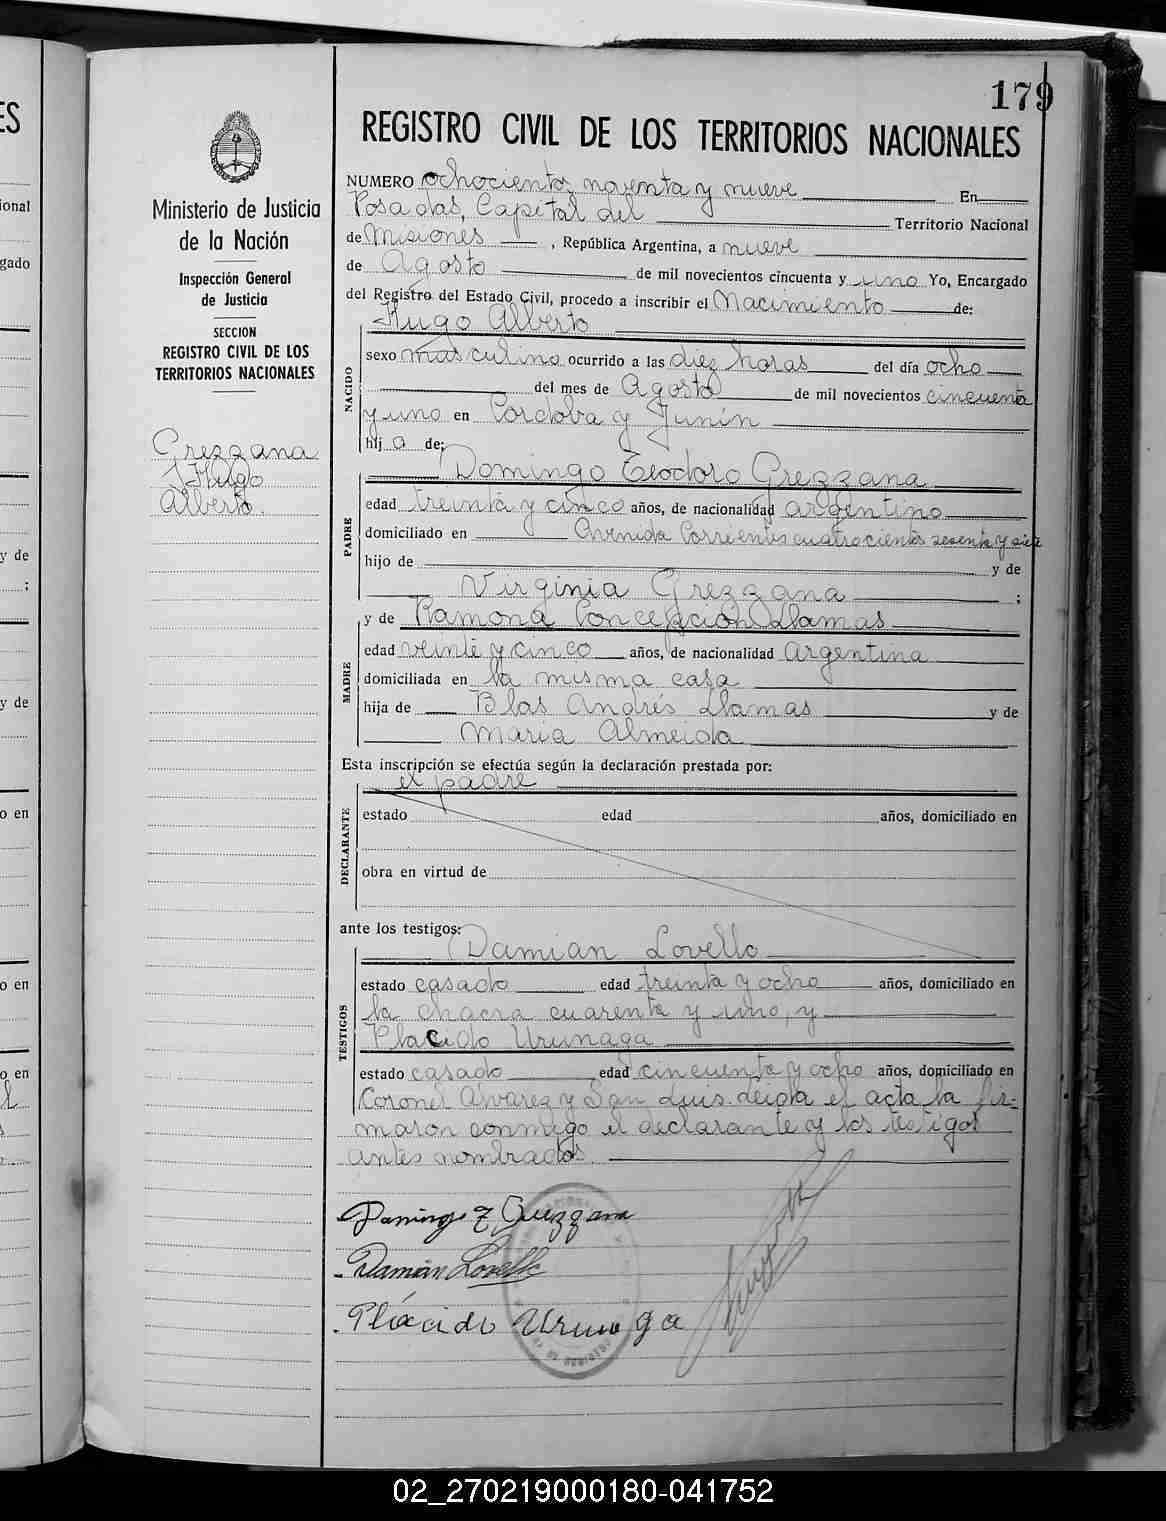 179
REGISTRO CIVIL DE LOS TERRITORIOS NACIONALES
Ministerio de Justicia
de la Nación
Inspección General
de Justicia
SECCION
REGISTRO CIVIL DE LOS
TERRITORIOS NACIONALES
Grezzana
Hugo
Alberto.
NUMERO ochocientos noventa y nueve En
Posadas, Capital del Territorio Nacional
de Misiones, República Argentina, a nueve
de Agosto de mil novecientos cincuenta y uno Yo, Encargado
del Registro del Estado Civil, procedo a inscribir el Nacimiento de:
Hugo Alberto
NACIDO
sexo masculino ocurrido a las diez horas del día ocho
del mes de Agosto de mil novecientos cincuenta
y uno en Córdoba y Junín
hij o de;
Domingo Teodoro Grezzana
PADRE
edad treinta y cinco años, de nacionalidad argentino
domiciliado en Avenida Corrientes cuatrocientos sesenta y siete
hijo de y de
Virginia Grezzana ;
y de Ramona Concepción Llamas
MADRE
edad veinte y cinco años, de nacionalidad argentina
domiciliada en la misma casa
hija de Blas Andrés Llamas y de
María Almeida
Esta inscripción se efectúa según la declaración prestada por:
el padre
DECLARANTE
estado edad años, domiciliado en
obra en virtud de
ante los testigos:
Damian Lovello
TESTIGOS
estado casado edad treinta y ocho años, domiciliado en
la chacra cuarenta y uno, y
Placido Urunaga
estado casado edad cincuenta y ocho años, domiciliado en
Coronel Alvarez y San Luis. Leída el acta la fir-
maron conmigo el declarante y los testigos
antes nombrados.
Domingo T Grezzana
Damián Lovello
Plácido Urunaga
02_270219000180-041752